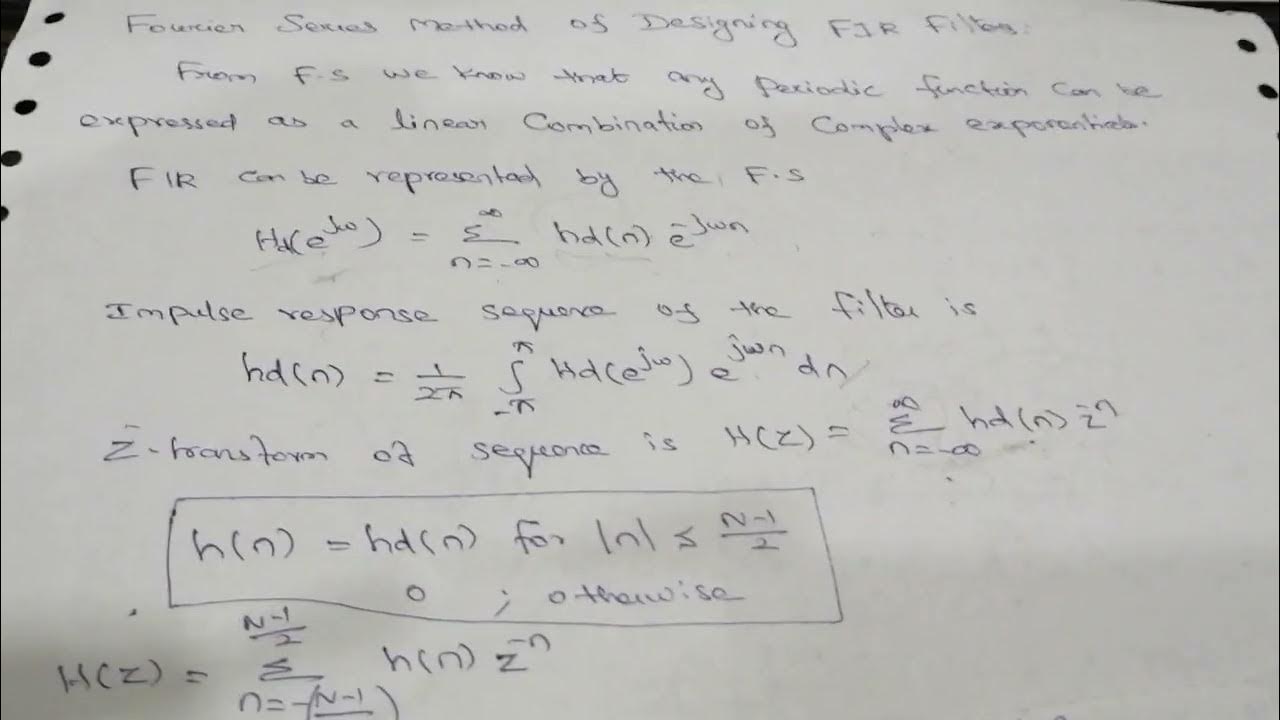 Fourier Series method of Designing FIR Filter.
From F.S we know that any Periodic function can be
expressed as a linear Combination of Complex exponentials.
FIR can be represented by the F.S
Hd(e^jω) = Σ_{n=-∞}^{∞} hd(n) e^{-jωn}
Impulse response sequence of the filter is
hd(n) = 1/2π ∫_{-π}^{π} Hd(e^jω) e^{jωn} dn
Z-transform of sequence is H(Z) = Σ_{n=-∞}^{∞} hd(n) z^{-n}
h(n) = hd(n) for |n| ≤ (N-1)/2
0 ; otherwise
H(Z) = Σ_{n=-(N-1)/2}^{(N-1)/2} h(n) Z^{-n}